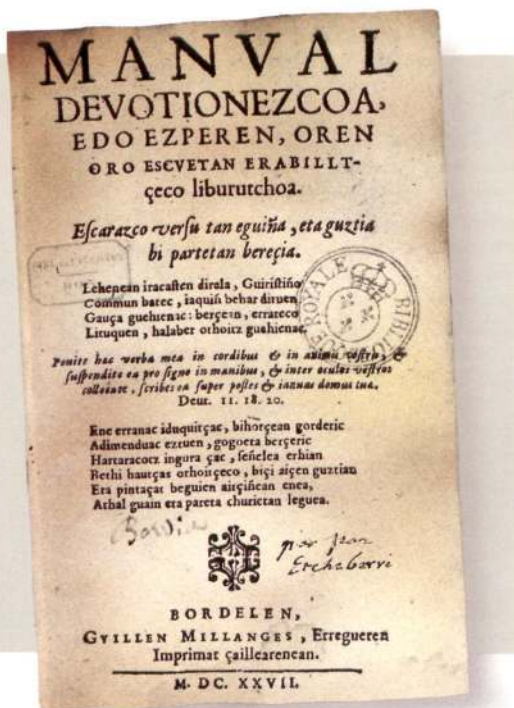 MANVAL
DEVOTIONEZCOA,
EDO EZPEREN, OREN
ORO ESCVETAN ERABILLT-
çeco liburutchoa.
Escarazco versu tan eguiña, eta guztia
bi partetan bereçia.
Lehenean iracasten dirala, Guiristiño
Commun batec, iaquin behar dituen
Gauça guehienac: berçean, errateco
Lituquen, halaber othoitz guehienac.
Ponite hæc verba mea in cordibus & in animis vestris, &
suspendite ea pro signo in manibus, & inter oculos vestros
collocate, scribes ea super postes & ianuas domus tuæ.
Deut. 11. 18. 20.
Ene erranac iduquitçac, bihotçean gorderic
Adimenduac eztuen, gogoeta berçeric
Hartaracotz ingura çac, señelea erhian
Bethi hautças orhoitçeco, biçi aiçen guztian
Eta pintaçat beguien aitçiñean enea,
Athal guain eta pareta churietan leguea.
BIBLIOTHEQUE ROYALE
par Jean
Etcheberri
BORDELEN,
GVILLEN MILLANGES, Erregueren
Imprimat çaillearenean.
M. DC. XXVII.